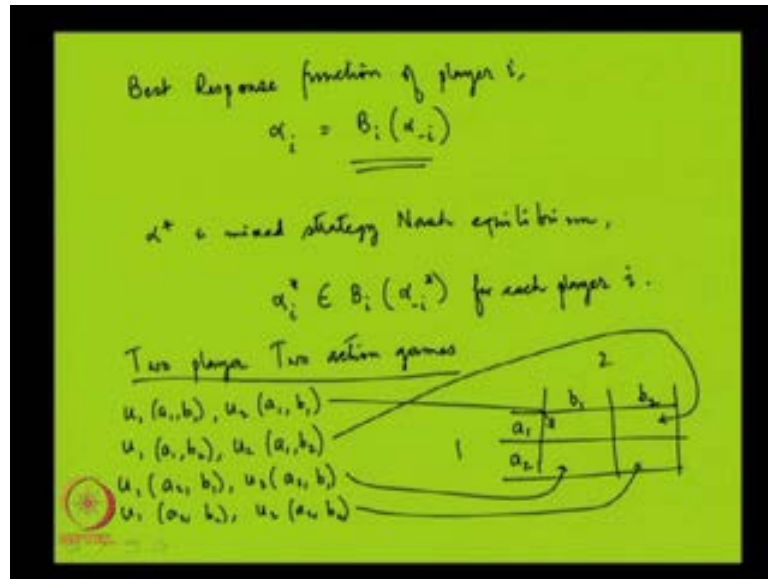 Best Response function of player i,
α_i = B_i (α_-i)
α* is mixed strategy Nash equilibrium,
α_i* ∈ B_i (α_-i*) for each player i.
Two player Two action games
2
u_1 (a_1, b_1), u_2 (a_1, b_1)
b_1 b_2
u_1 (a_1, b_2), u_2 (a_1, b_2)
a_1
1
a_2
u_1 (a_2, b_1), u_2 (a_2, b_1)
u_1 (a_2, b_2), u_2 (a_2, b_2)